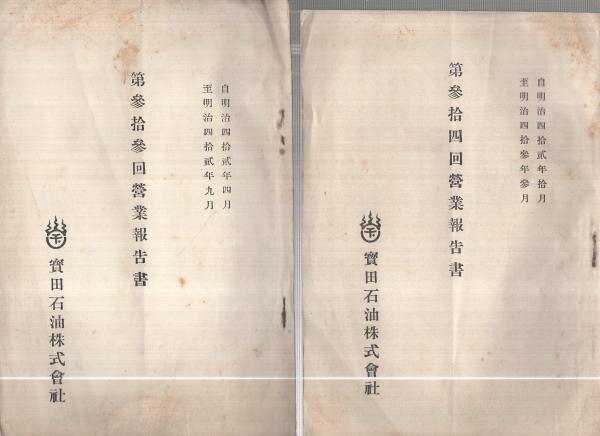 自明治四拾貳年四月
至明治四拾貳年九月
第參拾參回營業報告書
寳田石油株式會社
自明治四拾貳年拾月
至明治四拾參年參月
第參拾四回營業報告書
寳田石油株式會社